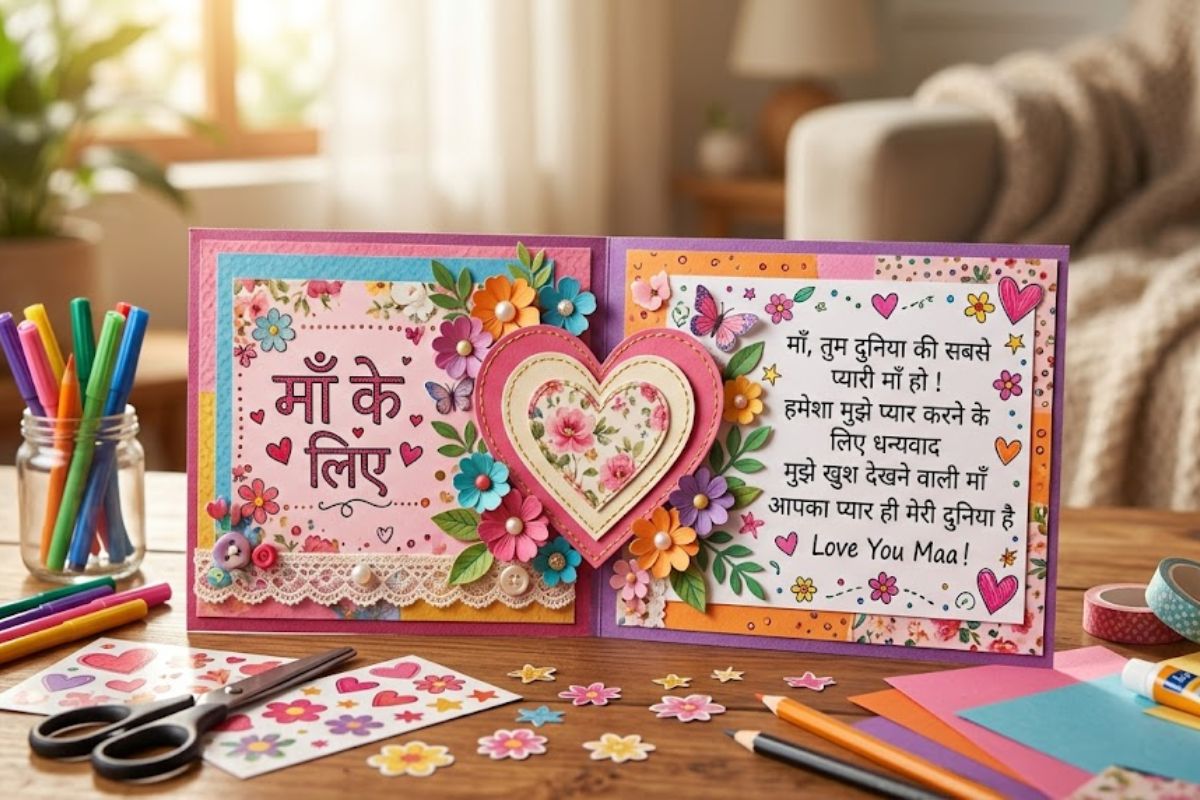 माँ के
लिए
माँ, तुम दुनिया की सबसे
प्यारी माँ हो !
हमेशा मुझे प्यार करने के
लिए धन्यवाद
मुझे खुश देखने वाली माँ
आपका प्यार ही मेरी दुनिया है
Love You Maa!